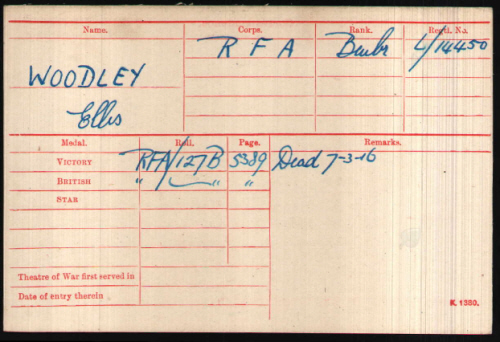 Name. Corps. Rank. Regtl. No.
WOODLEY R F A Bmbr L/14450
Ellis
Medal. Roll. Page. Remarks.
VICTORY RFA/127B 5389 Dead 7-3-16
BRITISH " " "
STAR
Theatre of War first served in
Date of entry therein
K 1380.